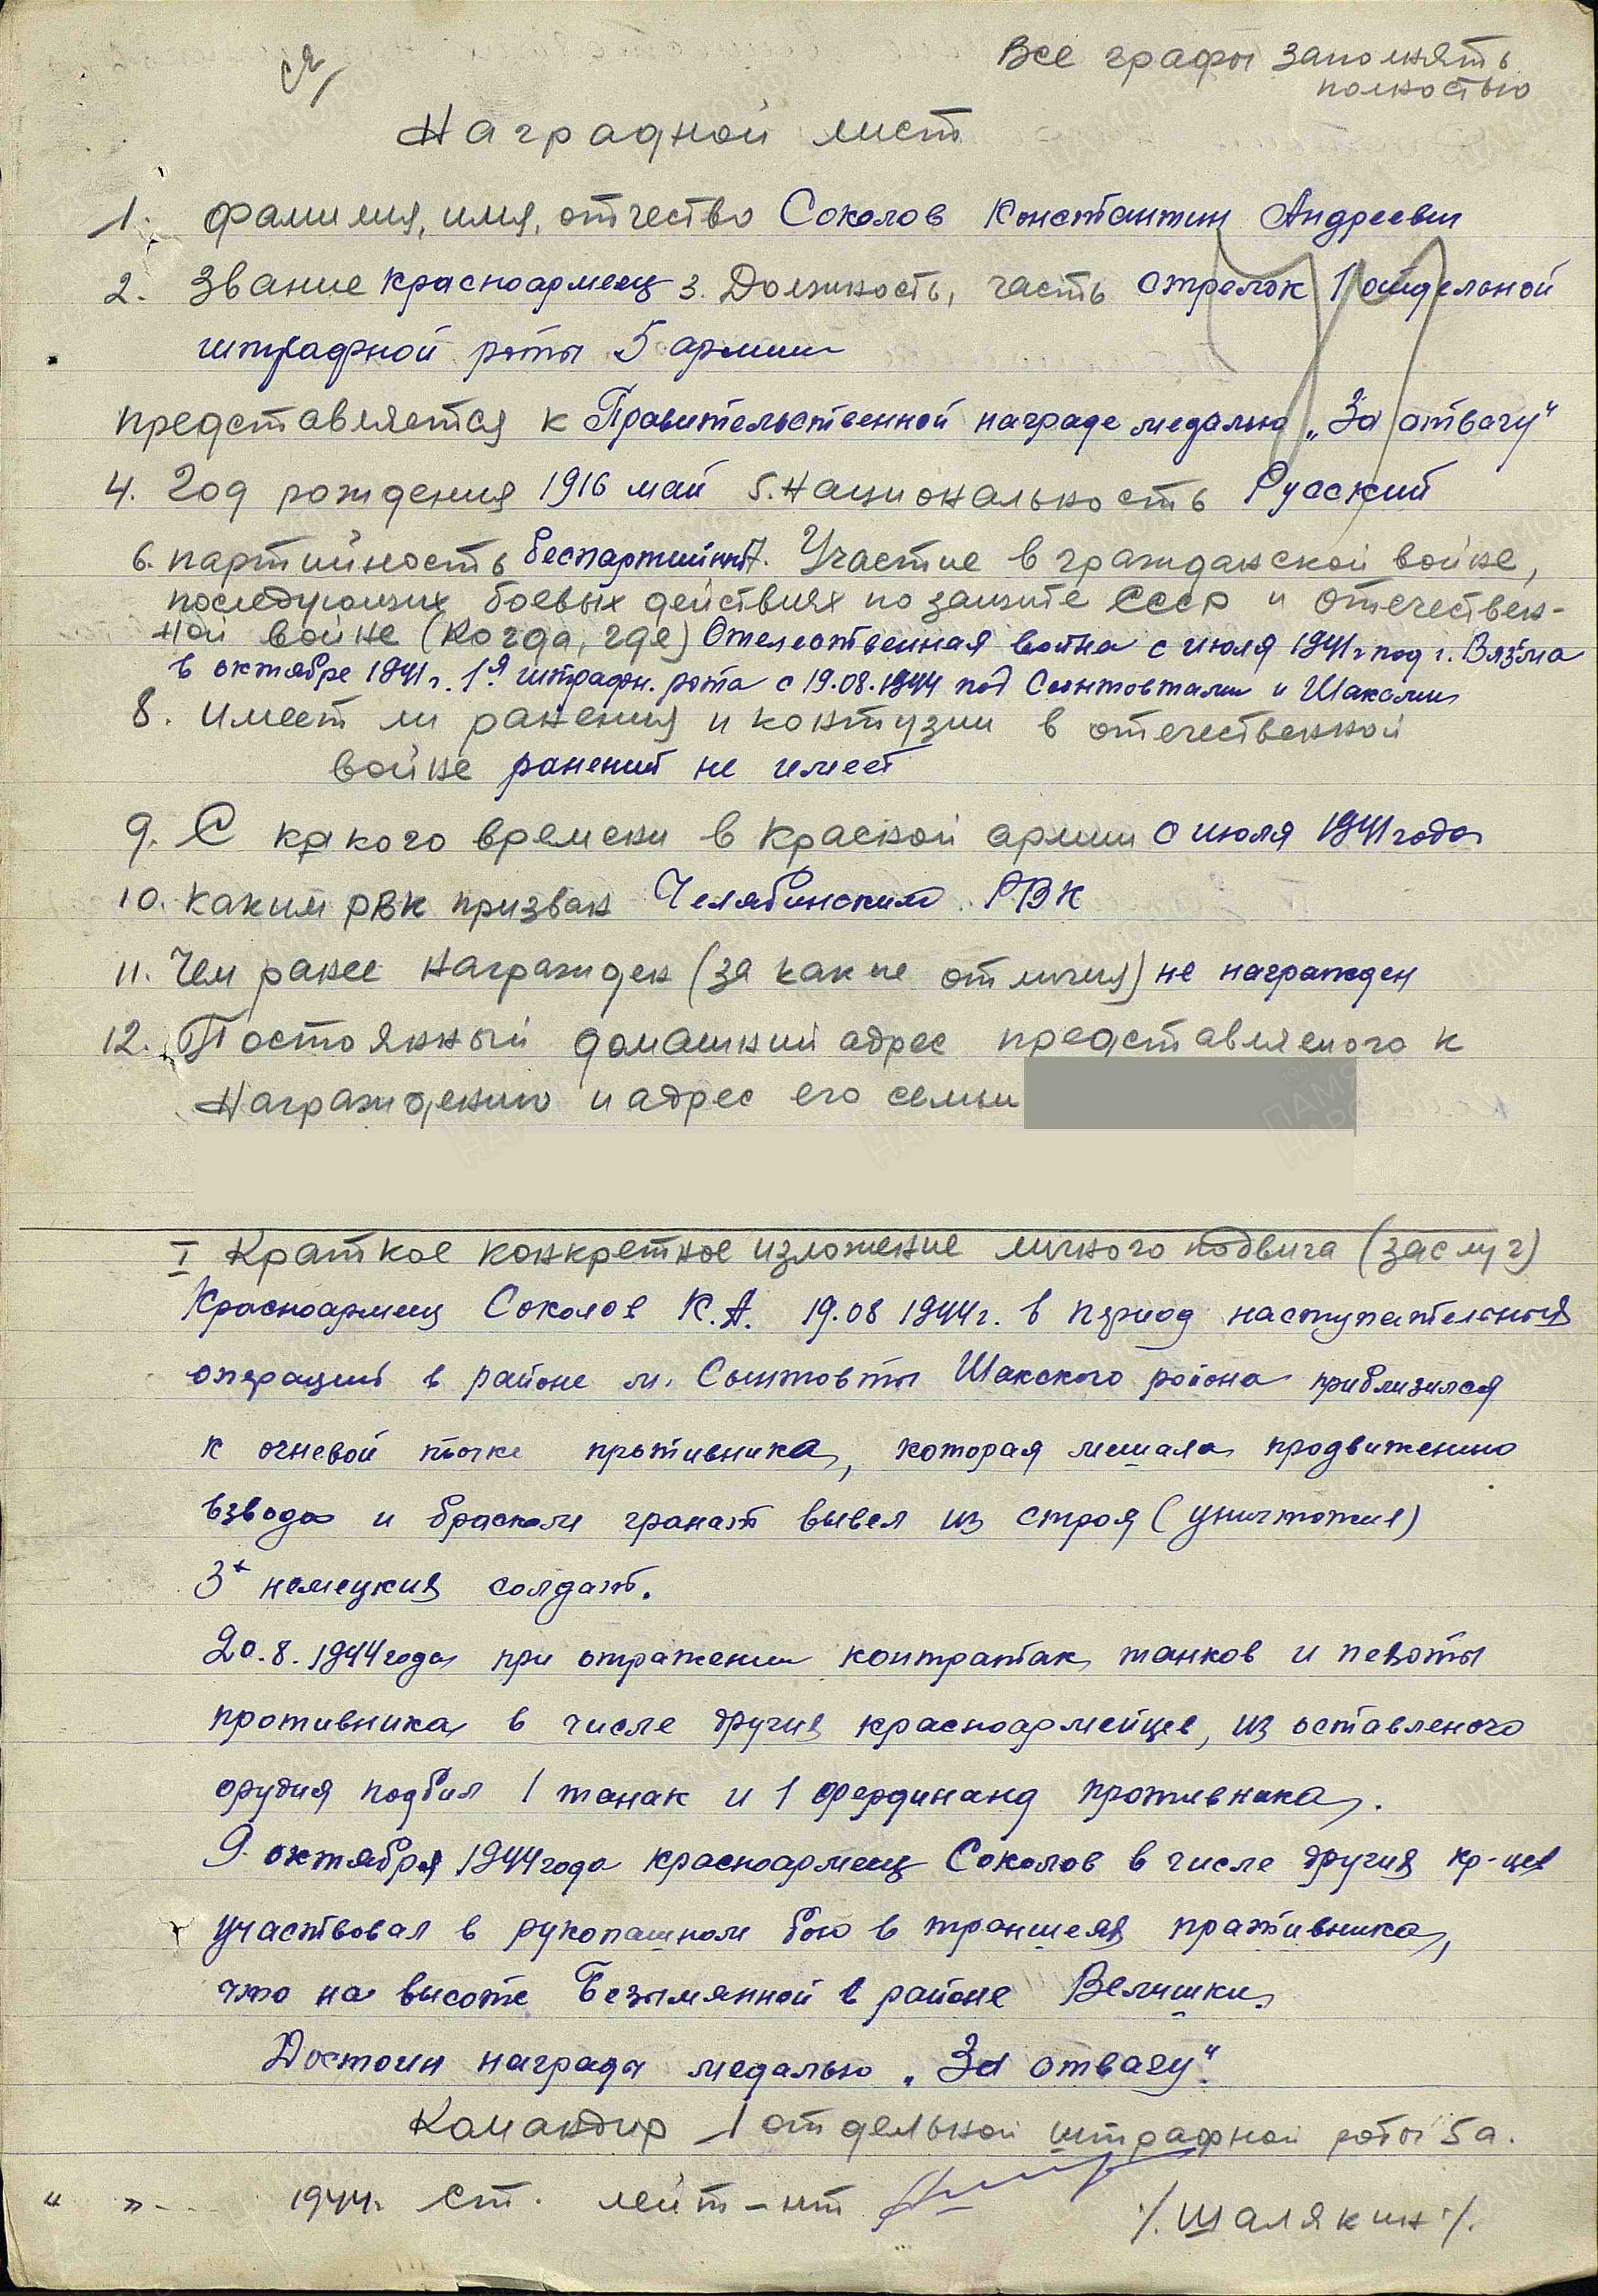 Все графы заполнять
полностью
Наградной лист
1. Фамилия, имя, отчество Соколов Константин Андреевич
2. Звание красноармеец 3. Должность, часть стрелок 1 отдельной
штрафной роты 5 армии
представляется к Правительственной награде медалью „За отвагу"
4. Год рождения 1916 май 5. Национальность Русский
6. партийность беспартийный 7. Участие в гражданской войне,
последующих боевых действиях по защите СССР и отечествен-
ной войне (когда, где) Отечественная война с июля 1941г под г. Вязьма
в октябре 1941г. 1я штрафн. рота с 19.08.1944 под Синтовтами и Шаками
8. имеет ли ранения и контузии в отечественной
войне ранений не имеет
9. С какого времени в красной армии с июля 1941 года
10. каким РВК призван Челябинским РВК
11. Чем ранее награжден (за какие отличия) не награжден
12. Постоянный домашний адрес представляемого к
награждению и адрес его семьи
I Краткое конкретное изложение личного подвига (заслуг)
Красноармеец Соколов К.А. 19.08 1944г. в период наступательных
операций в районе м. Сынтовты Шакского района приблизился
к огневой точке противника, которая мешала продвижению
взвода и броском гранат вывел из строя (уничтожил)
3х немецких солдат.
20.8.1944 года при отражении контратак танков и пехоты
противника в числе других красноармейцев, из оставленого
орудия подбил 1 танак и 1 фердинанд противника.
9 октября 1944 года красноармеец Соколов в числе других кр-цев
участвовал в рукопашном бою в траншеях противника,
что на высоте Безымянной в районе Велишки.
Достоин награды медалью „За отвагу".
Командир 1 отдельной штрафной роты 5а.
" " 1944г. ст. лейт-нт /Шалякин/.